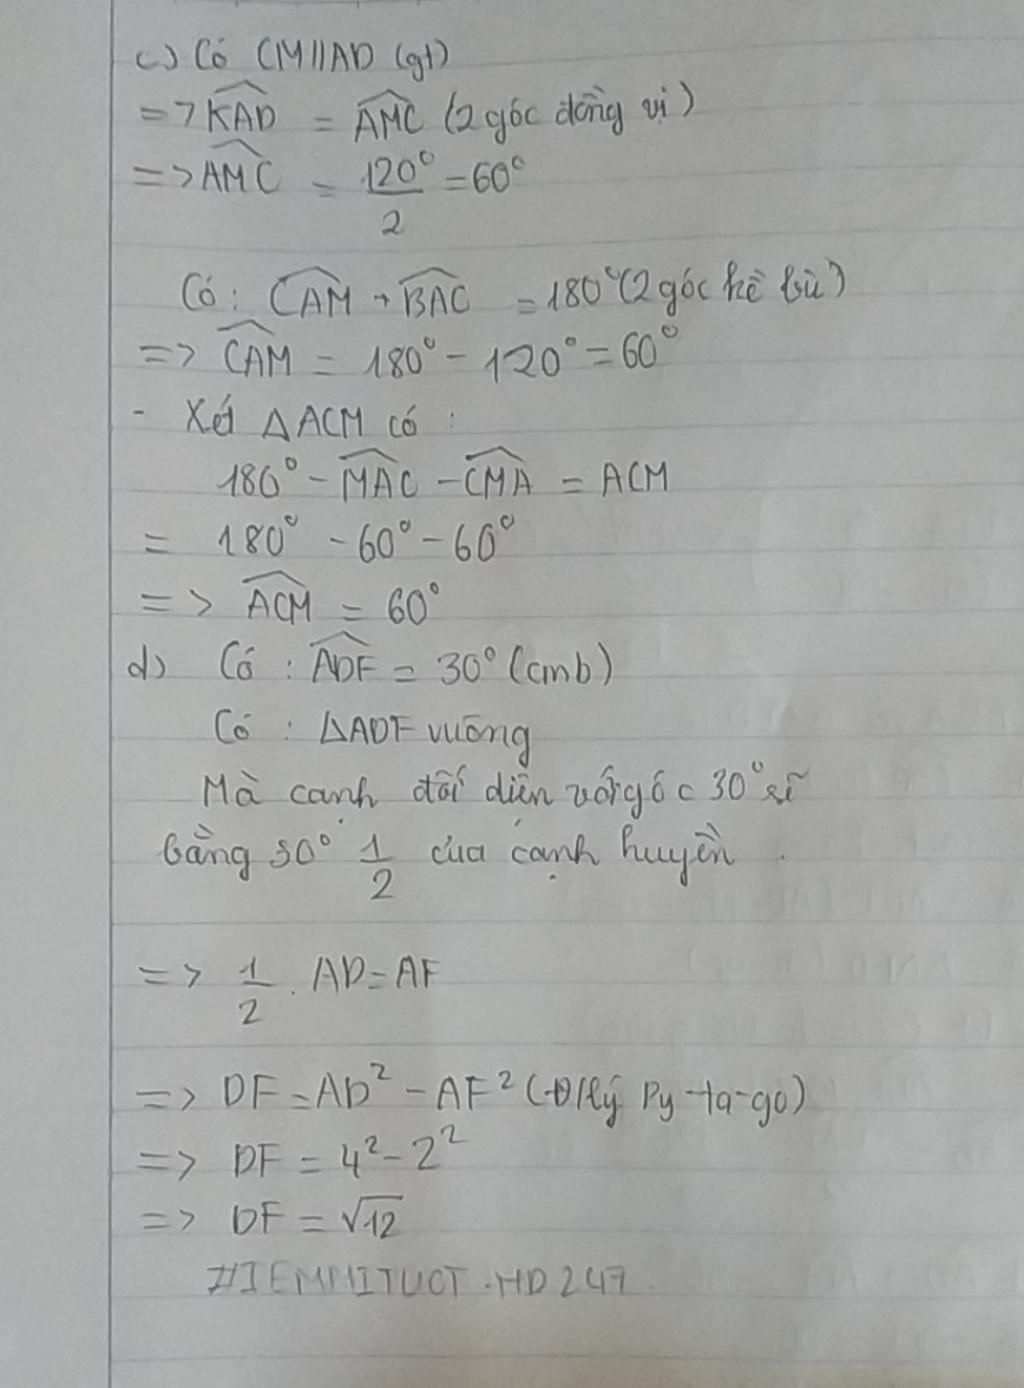 c) Có CM//AD (gt)
=> KAD = AMC (2 góc đồng vị)
=> AMC = 120°/2 = 60°
Có: CAM + BAC = 180° (2 góc kề bù)
=> CAM = 180° - 120° = 60°
- Xét △ACM có:
180° - MAC - CMA = ACM
= 180° - 60° - 60°
=> ACM = 60°
d) Có: ADF = 30° (cmb)
Có: △ADF vuông
Mà cạnh đối diện với góc 30° sẽ
bằng 30° 1/2 của cạnh huyền.
=> 1/2 . AD = AF
=> DF = AD² - AF² (Đ/lý Py-ta-go)
=> DF = 4² - 2²
=> DF = √12
#IEMMITUCT.HD247